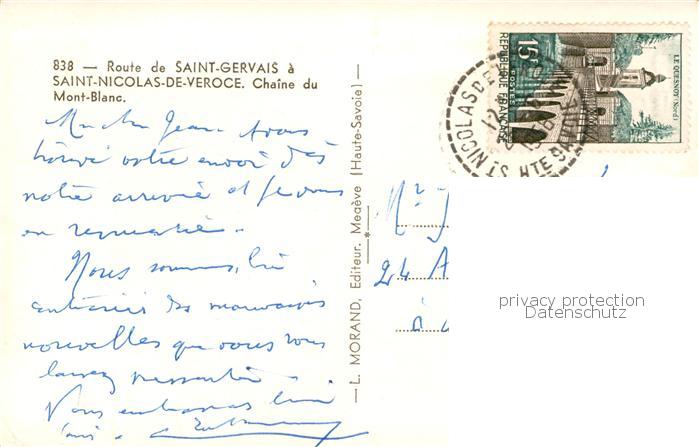 838 — Route de SAINT-GERVAIS à
SAINT-NICOLAS-DE-VEROCE. Chaîne du
Mont-Blanc.
Mon cher Jean nous
trouvé votre envoi dès
notre arrivée et je vous
en remercie.
Nous sommes
des mauvaises
nouvelles que vous nous
laissez
Vous embrasse
— L. MORAND, Editeur. Megève (Haute-Savoie) —
15F
POSTES
REPUBLIQUE FRANÇAISE
LE QUESNOY (Nord)
ST NICOLAS DE V
HTE SAVOIE
Mr J
24 A
à
privacy protection
Datenschutz